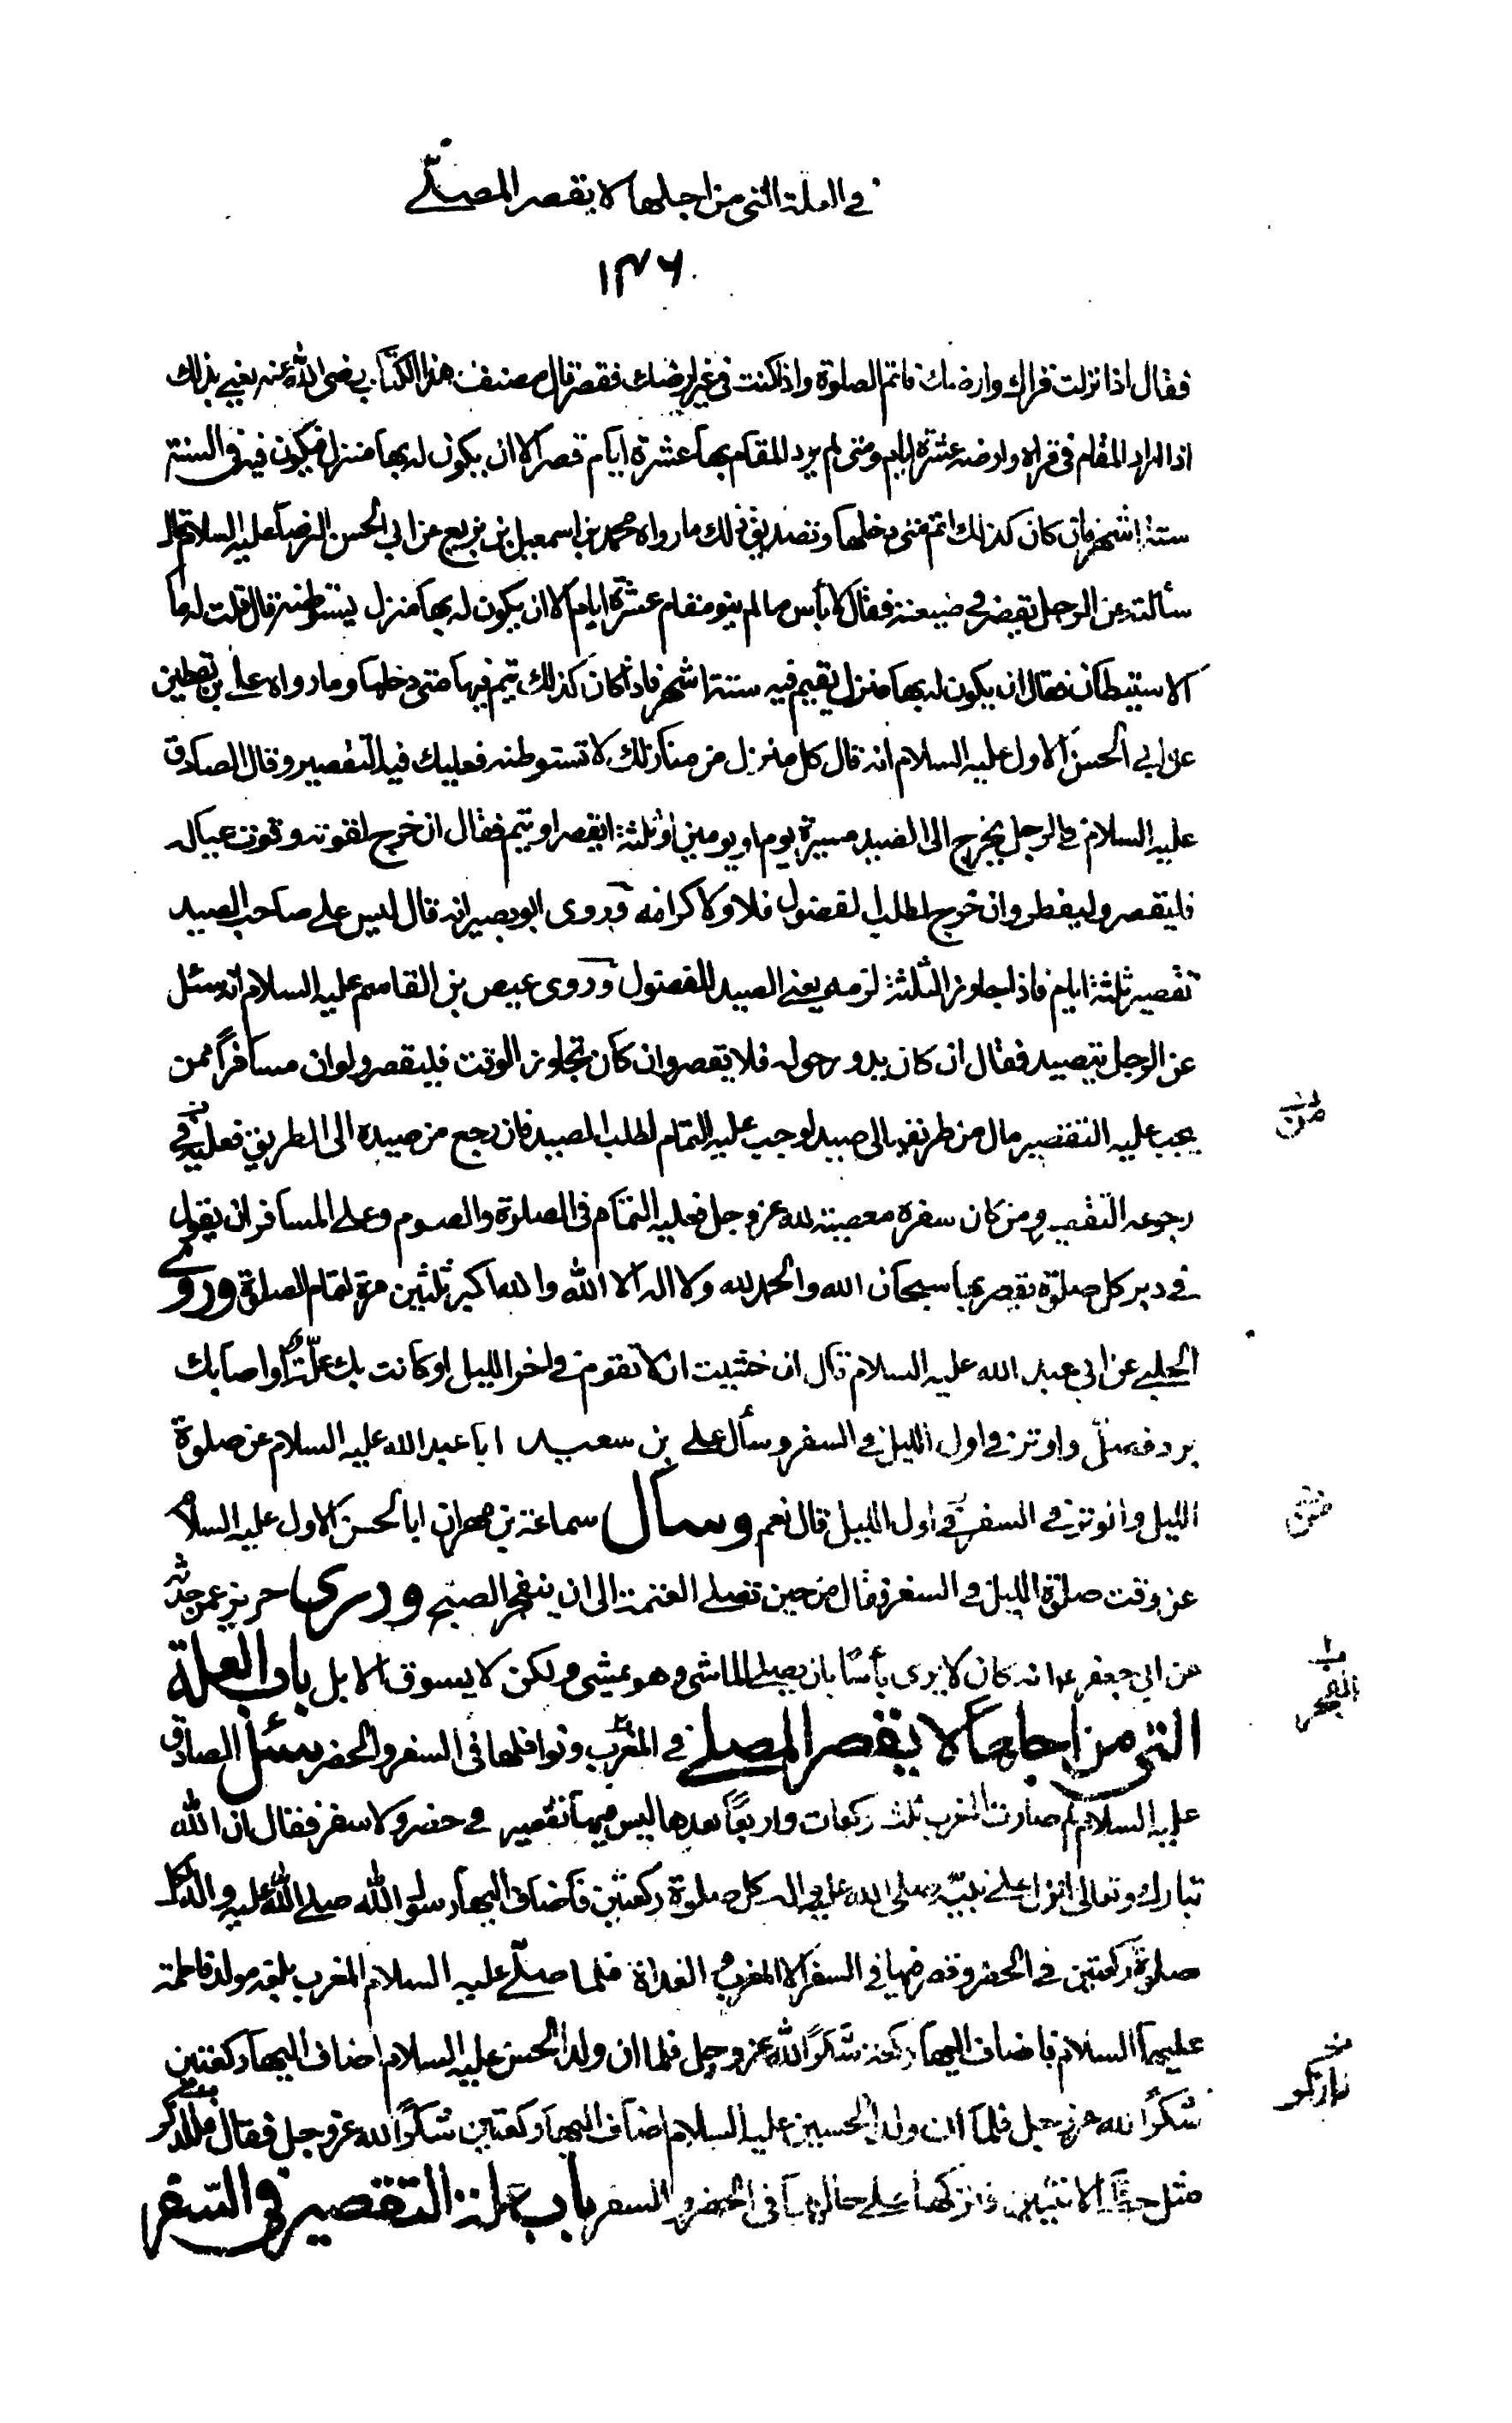 في العلة التى من اجلها لا يقصر المصلّے
١٣٦
فقال اذا نزلت قراك وارضك فاتم الصلوة واذا كنت فى غير ارضك فقصر قال مصنف هذا الكتاب رضى الله عنه يعنے بذلك
اذا اراد المقام فى قراه وارضه عشرة ايام ومتى لم يرد المقام بها عشرة ايام قصر الا ان يكون له بها منزل فيكون فيه فى السنة
ستة اشهر فان كان كذلك اتم متى دخلها وتصديق ذلك ما رواه محمد بن اسمعيل بن بزيع عن ابي الحسن الرضا عليه السلام قال
سألته عن الرجل يقصر فى ضيعته فقال لا بأس ما لم ينو مقام عشرة ايام الا ان يكون له بها منزل يستوطنه قال قلت له ما
الاستيطان فقال ان يكون له بها منزل يقيم فيه ستة اشهر فاذا كان كذلك يتم فيها متى دخلها وما رواه علے بن يقطين
عن ابي الحسن الاول عليه السلام انه قال كل منزل من منازلك لا تستوطنه فعليك فيه التقصير وقال الصادق
عليه السلام فى الرجل يخرج الى الصيد مسيرة يوم او يومين او ثلثة ايقصر او يتم فقال ان خرج لقوته وقوت عياله
فليقصر وليفطر وان خرج لطلب الفضول فلا ولا كرامة وروى ابو بصير انه قال ليس على صاحب الصيد
تقصير ثلثة ايام فاذا جاوز الثلثة لزمه يعنى الصيد للفضول وروى عيص بن القاسم عليه السلام انه سئل
عن الرجل يتصيد فقال ان كان يدور حوله فلا يقصر وان كان تجاوز الوقت فليقصر ولو ان مسافراً ممن
يجب عليه التقصير مال من طريقه الى صيد لوجب عليه التمام لطلب الصيد فان رجع من صيده الى الطريق فعليه في
رجوعه التقصير ومن كان سفره معصية لله عز وجل فعليه التمام فى الصلوة والصوم وعلى المسافر ان يقول
في دبر كل صلوة يقصر بها سبحان الله والحمد لله ولا اله الا الله والله اكبر ثلثين مرة لتمام الصلوة وروى
الحلبے عن ابي عبد الله عليه السلام قال ان خشيت ان لا تقوم في اخر الليل او كانت بك علّة او اصابك
برد فصلّ واوتر في اول الليل في السفر وسأل علے بن سعيد ابا عبد الله عليه السلام عن صلوة
الليل والوتر في السفر في اول الليل قال نعم وسأل سماعة بن مهران ابا الحسن الاول عليه السلام
عن وقت صلوة الليل في السفر فقال من حين تصلے العتمة الى ان ينفجر الصبح وروى حريز عمن حدثه
عن ابي جعفر ع انه كان لا يرى بأسًا بان يصلے الماشى وهو يمشى ولكن لا يسوق الابل باب العلة
التى من اجلها لا يقصر المصلے في المغرب ونوافلها فى السفر والحضر سئل الصادق
عليه السلام لم صارت المغرب ثلث ركعات واربعاً بعدها ليس فيها تقصير في حضر ولا سفر فقال ان الله
تبارك وتعالى انزل على نبيّه صلى الله عليه واله كل صلوة ركعتين فاضاف اليها رسول الله صلے الله عليه واله لكل
صلوة ركعتين في الحضر وقصر فيها في السفر الا المغرب والغداة فلما صلّے عليه السلام المغرب بلغه مولد فاطمة
عليها السلام فاضاف اليها ركعة شكرًا لله عز وجل فلما ان ولد الحسن عليه السلام اضاف اليها ركعتين
شكرًا لله عز وجل فلما ان ولد الحسين عليه السلام اضاف اليها ركعتين شكرًا لله عز وجل فقال للذكر
مثل حظ الانثيين فتركها على حالها فى الحضر والسفر باب علة التقصير في السفر
من
الفجر